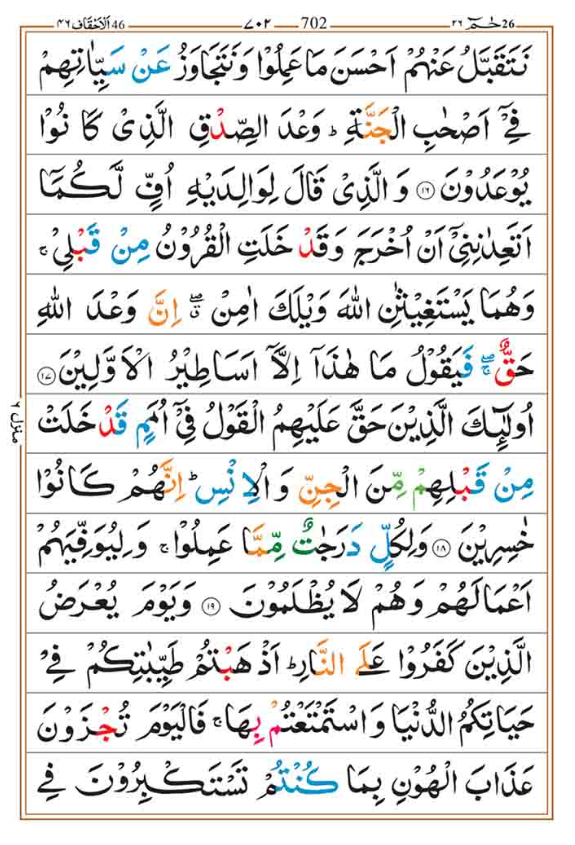 ٤٦ الاحقاف 46 ٧٠٢ 702 حٰمٓ ٢٦ 26
نَتَقَبَّلُ عَنْهُمْ اَحْسَنَ مَا عَمِلُوْا وَنَتَجَاوَزُ عَنْ سَيِّاٰتِهِمْ
فِيْۤ اَصْحٰبِ الْجَنَّةِ ؕ وَعْدَ الصِّدْقِ الَّذِيْ كَانُوْا
يُوْعَدُوْنَ ۝۱۶ وَالَّذِيْ قَالَ لِوَالِدَيْهِ اُفٍّ لَّكُمَاۤ
اَتَعِدٰنِنِيْۤ اَنْ اُخْرَجَ وَقَدْ خَلَتِ الْقُرُوْنُ مِنْ قَبْلِيْ ۚ
وَهُمَا يَسْتَغِيْثٰنِ اللّٰهَ وَيْلَكَ اٰمِنْ ۖۗ اِنَّ وَعْدَ اللّٰهِ
حَقٌّ ۖۚ فَيَقُوْلُ مَا هٰذَاۤ اِلَّاۤ اَسَاطِيْرُ الْاَوَّلِيْنَ ۝۱۷
اُولٰٓئِكَ الَّذِيْنَ حَقَّ عَلَيْهِمُ الْقَوْلُ فِيْۤ اُمَمٍ قَدْ خَلَتْ
مِنْ قَبْلِهِمْ مِّنَ الْجِنِّ وَالْاِنْسِ ؕ اِنَّهُمْ كَانُوْا
خٰسِرِيْنَ ۝۱۸ وَلِكُلٍّ دَرَجٰتٌ مِّمَّا عَمِلُوْا ۚ وَلِيُوَفِّيَهُمْ
اَعْمَالَهُمْ وَهُمْ لَا يُظْلَمُوْنَ ۝۱۹ وَيَوْمَ يُعْرَضُ
الَّذِيْنَ كَفَرُوْا عَلَى النَّارِ ؕ اَذْهَبْتُمْ طَيِّبٰتِكُمْ فِيْ
حَيَاتِكُمُ الدُّنْيَا وَاسْتَمْتَعْتُمْ بِهَا ۚ فَالْيَوْمَ تُجْزَوْنَ
عَذَابَ الْهُوْنِ بِمَا كُنْتُمْ تَسْتَكْبِرُوْنَ فِي
منزل ٦